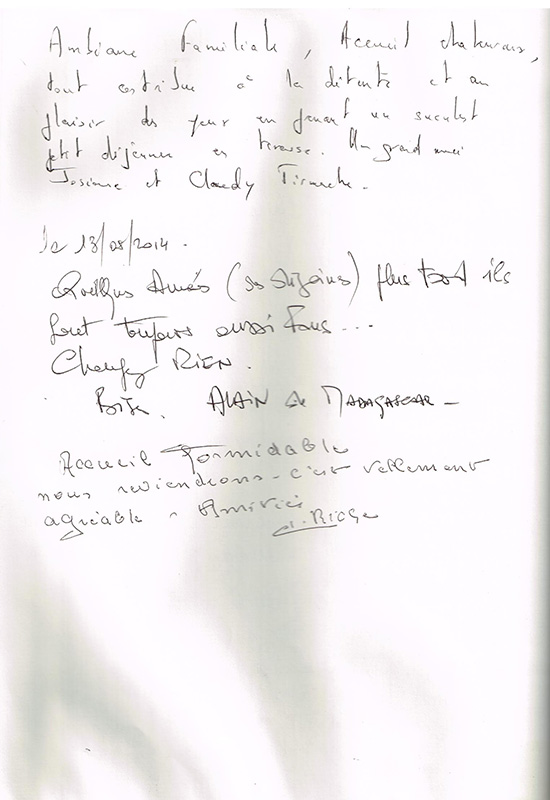 Ambiance Familiale, Accueil chaleureux,
tout contribue à la détente et au
plaisir des yeux en prenant un succulent
petit déjeuner en terrasse. Un grand merci
Josianne et Claudy
le 13/08/2014.
Quelques Années (des dizaines) plus tard ils
sont toujours aussi fous...
Changez RIEN.
Bises. ALAIN de MADAGASCAR -
Accueil Formidable
nous reviendrons - c'est tellement
agréable - Amitiés